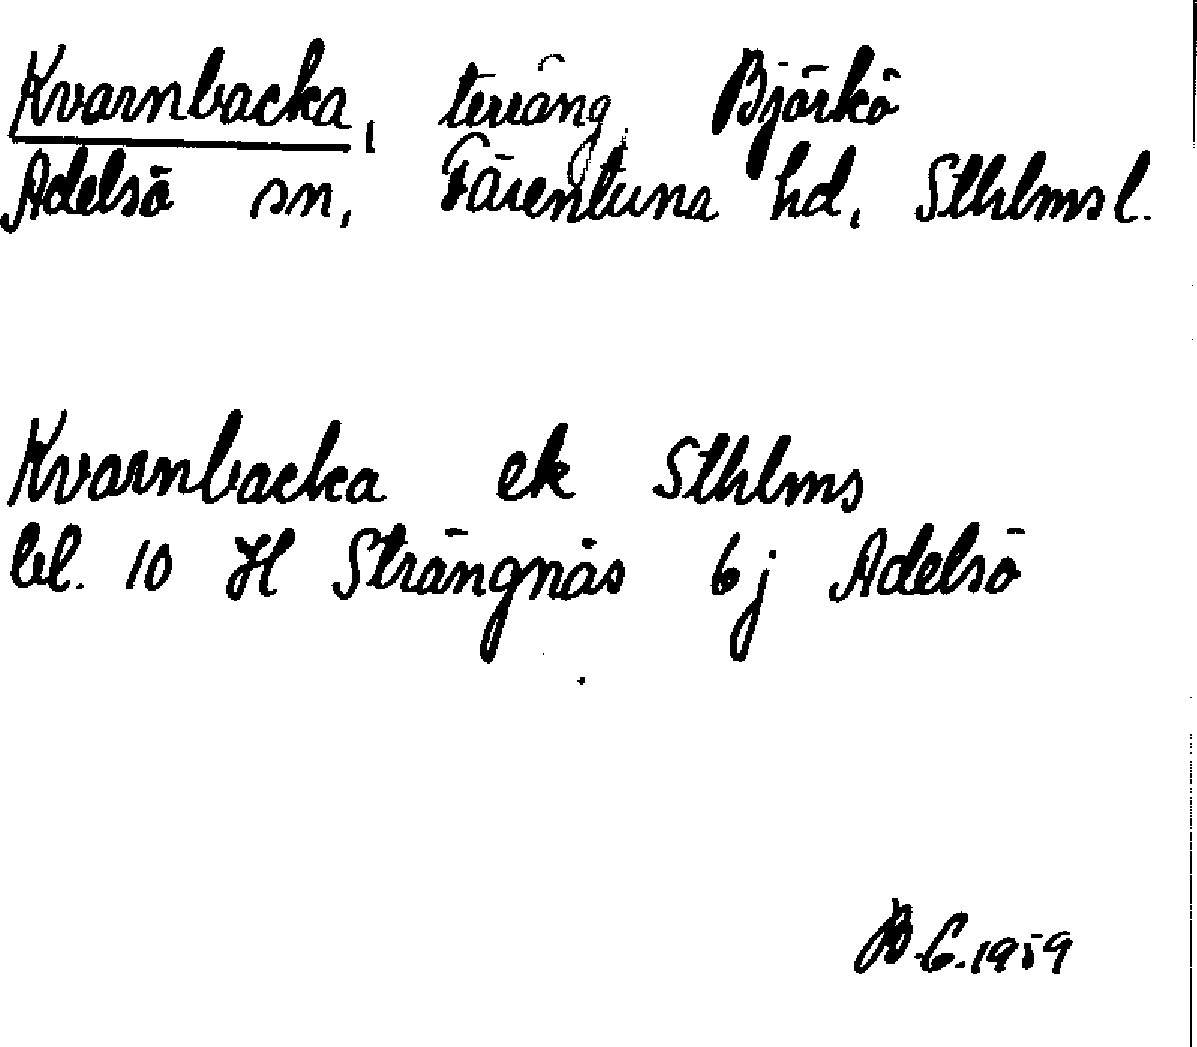 Kvarnbacka, terräng Björkö
Adelsö sn, Färentuna hd, Sthlms l.
Kvarnbacka ek Sthlms
bl. 10 H Strängnäs 6j Adelsö
1959